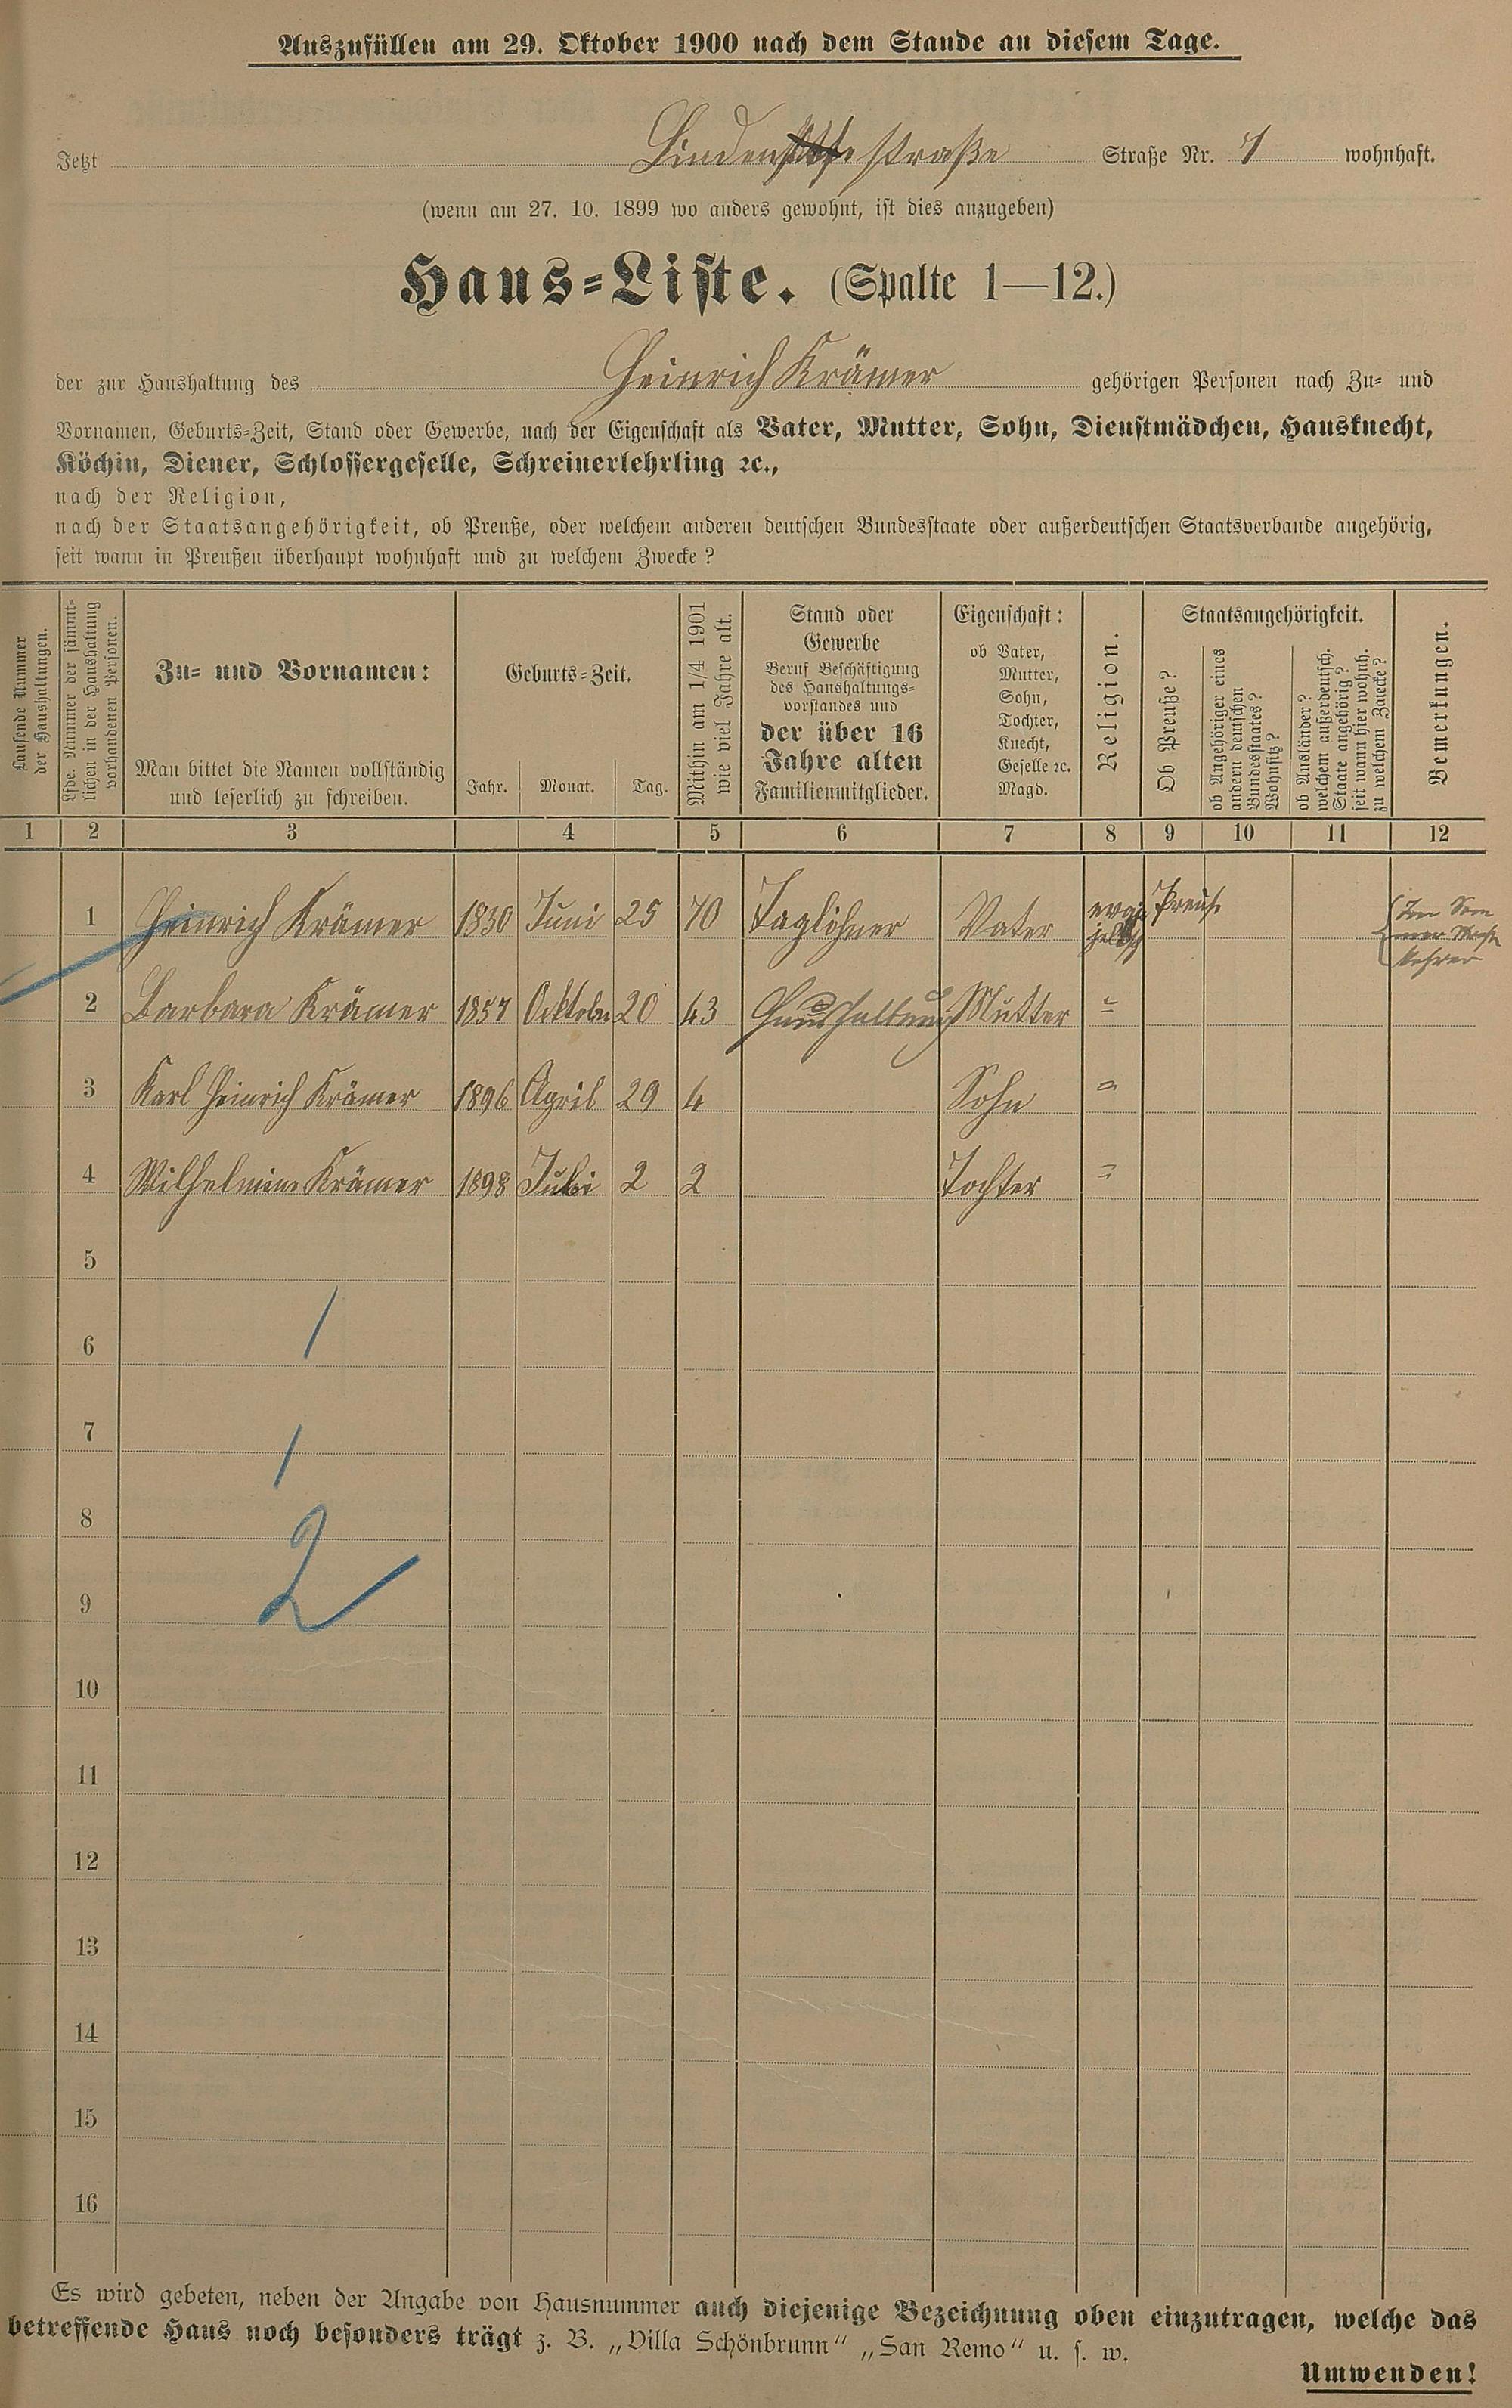 Auszufüllen am 29. Oktober 1900 nach dem Stande an diesem Tage.
Jetzt Lindenstraße Straße Nr. 7 wohnhaft.
(wenn am 27. 10. 1899 wo anders gewohnt, ist dies anzugeben)
Haus-Liste. (Spalte 1—12.)
der zur Haushaltung des Heinrich Krämer gehörigen Personen nach Zu- und
Vornamen, Geburts-Zeit, Stand oder Gewerbe, nach der Eigenschaft als Vater, Mutter, Sohn, Dienstmädchen, Hausknecht,
Köchin, Diener, Schlossergeselle, Schreinerlehrling ꝛc.,
nach der Religion,
nach der Staatsangehörigkeit, ob Preuße, oder welchem anderen deutschen Bundesstaate oder außerdeutschen Staatsverbande angehörig,
seit wann in Preußen überhaupt wohnhaft und zu welchem Zwecke?
Laufende Nummer
der Haushaltungen.
Lfde. Nummer der sämmt-
lichen in der Haushaltung
vorhandenen Personen.
Zu- und Vornamen:
Man bittet die Namen vollständig
und leserlich zu schreiben.
Geburts-Zeit.
Jahr. Monat. Tag.
Mithin am 1/4 1901
wie viel Jahre alt.
Stand oder
Gewerbe
Beruf Beschäftigung
des Haushaltungs-
vorstandes und
der über 16
Jahre alten
Familienmitglieder.
Eigenschaft:
ob Vater,
Mutter,
Sohn,
Tochter,
Knecht,
Geselle ꝛc.
Magd.
Religion.
Staatsangehörigkeit.
Ob Preuße?
ob Angehöriger eines
andern deutschen
Bundesstaates?
Wohnsitz?
ob Ausländer?
welchem außerdeutsch.
Staate angehörig?
seit wann hier wohnh.
zu welchem Zwecke?
Bemerkungen.
1 2 3 4 5 6 7 8 9 10 11 12
1 Heinrich Krämer 1830 Juni 25 70 Taglöhner Vater evan Preuße
2 Barbara Krämer 1857 Ocktober 20 43 Haushaltung Mutter "
3 Karl Heinrich Krämer 1896 April 29 4 Sohn "
4 Wilhelmine Krämer 1898 Juli 2 2 Tochter "
5
6 1
7 1
8 2
9
10
11
12
13
14
15
16
Es wird gebeten, neben der Angabe von Hausnummer auch diejenige Bezeichnung oben einzutragen, welche das
betreffende Haus noch besonders trägt z. B. „Villa Schönbrunn“ „San Remo“ u. s. w.
Umwenden!